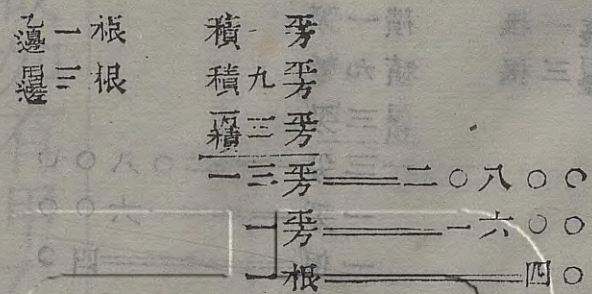 乙邊一根 積一平方
甲邊三根 積九平方
積三平方
一三平方＝二〇八〇〇
一平方＝一六〇〇
一根＝四〇